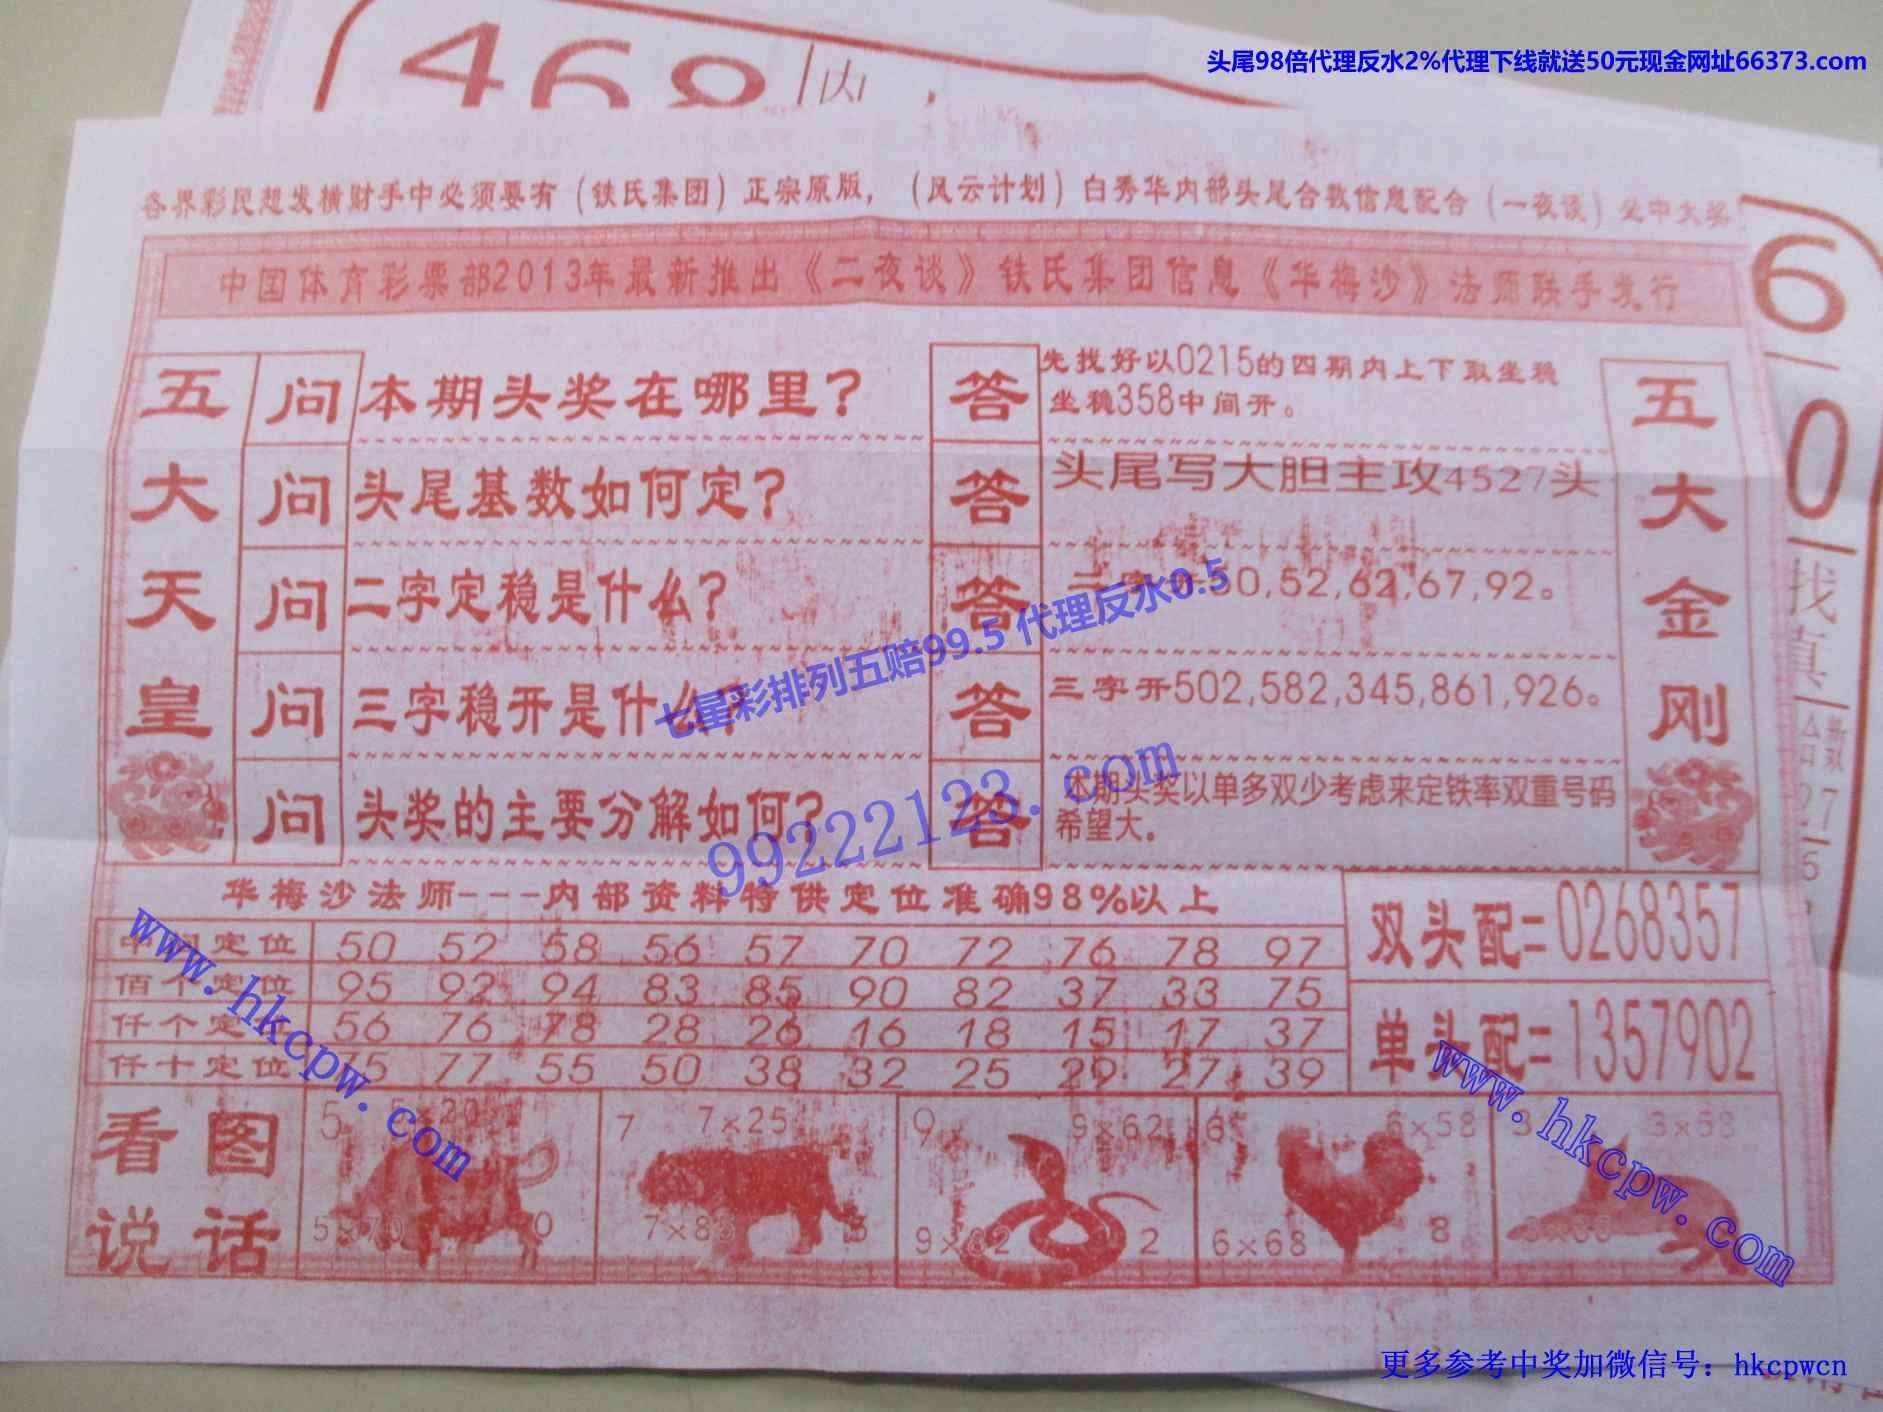 头尾98倍代理反水2%代理下线就送50元现金网址66373.com
468
各界彩民想发横财手中必须要有（铁氏集团）正宗原版，（风云计划）白秀华内部头尾合数信息配合（一夜谈）必中大奖
中国体育彩票部2013年最新推出《二夜谈》铁氏集团信息《华梅沙》法师联手发行
五大天皇
问 本期头奖在哪里？
答 先找好以0215的四期内上下取坐稳
坐稳358中间开。
问 头尾基数如何定？
答 头尾写大胆主攻4527头
问 二字定稳是什么？
答 二字开50,52,62,67,92。
问 三字稳开是什么？
答 三字开502,582,345,861,926。
问 头奖的主要分解如何？
答 本期头奖以单多双少考虑来定铁率双重号码
希望大。
五大金刚
七星彩排列五赔99.5 代理反水0.5
99222123.com
华梅沙法师---内部资料特供定位准确98%以上
中间定位 50 52 58 56 57 70 72 76 78 97
佰个定位 95 92 94 83 85 90 82 37 33 75
仟个定位 56 76 78 28 26 16 18 15 17 37
仟十定位 75 77 55 50 38 32 25 29 27 39
双头配=0268357
单头配=1357902
看图说话
5 5×20 5×70 0
7 7×25 7×85 3
9 9×62 9×82 2
6 6×58 6×68 8
3 3×53
www.hkcpw.com
www.hkcpw.com
6
0
找真
更多参考中奖加微信号：hkcpwcn